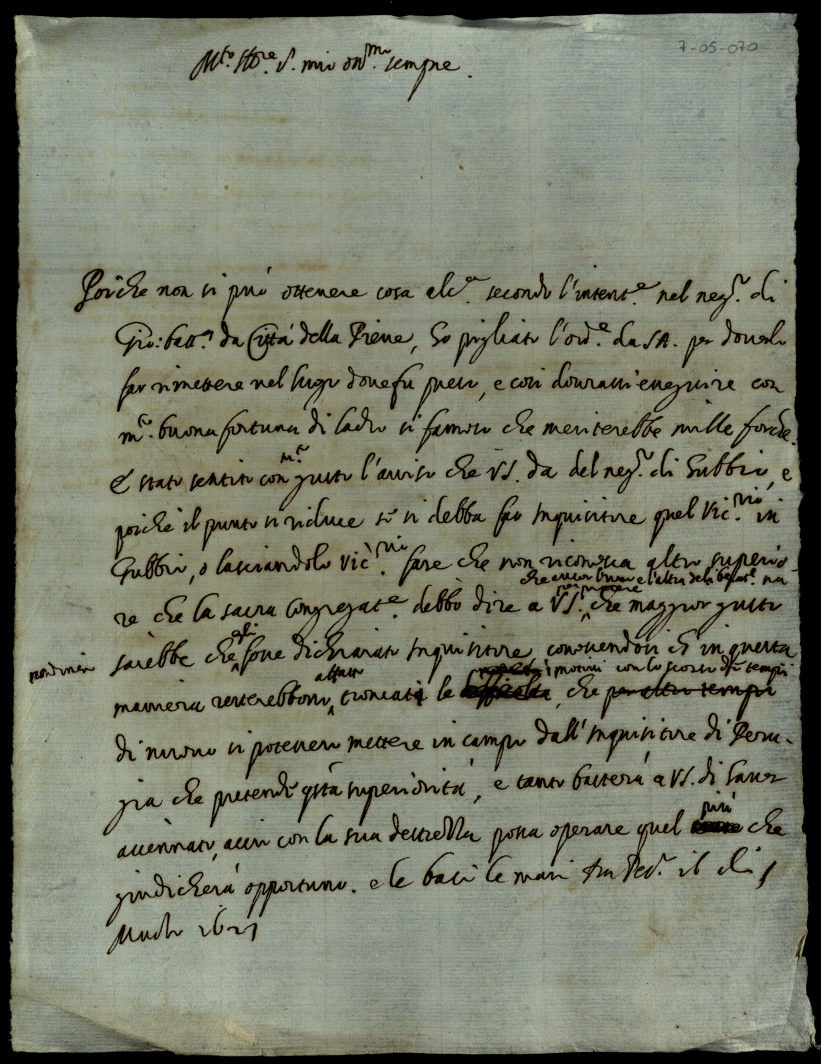 7-05-070
M.to Ill.re S. mio oss.mo sempre.
Poiche non si può ottenere cosa alc.a secondo l'intent.e nel neg.o di
Gio: batt.a da Città della Pieve, ho pigliato l'ord.e da SA. per doverlo
far rimettere nel luogo dove fu preso, e così dovrassi eseguire con
m.a buona fortuna di ladro si famoso che meriterebbe mille forche.
E' stato sentito con m.o gusto l'aviso che VS. da del neg.o di Gubbio, e
poiche il punto si riduce se si debba far Inquisitore quel Vic.rio in
Gubbio, o lasciandolo Vic.rio fare che non riconosca altro superio-
che ancor buono e l'altro
re che la sacra Congregat.e debbo dire a VS. che maggior gusto
sarebbe che egli fosse dichiarato Inquisitore, conoscendosi ch'in questa
i motivi con lo scorso di tempi
maniera resterebbono affatto troncati le difficoltà, che per altro tempo
di nuovo si potessero mettere in campo dall'Inquisitore di Peru-
gia che pretende q.sta superiorità, e tanto basterà a VS. di haver
accennato, acciò con la sua destrezza possa operare quel più che
giudicherà opportuno. e le bacio le mani Da Pes.o il di
1621